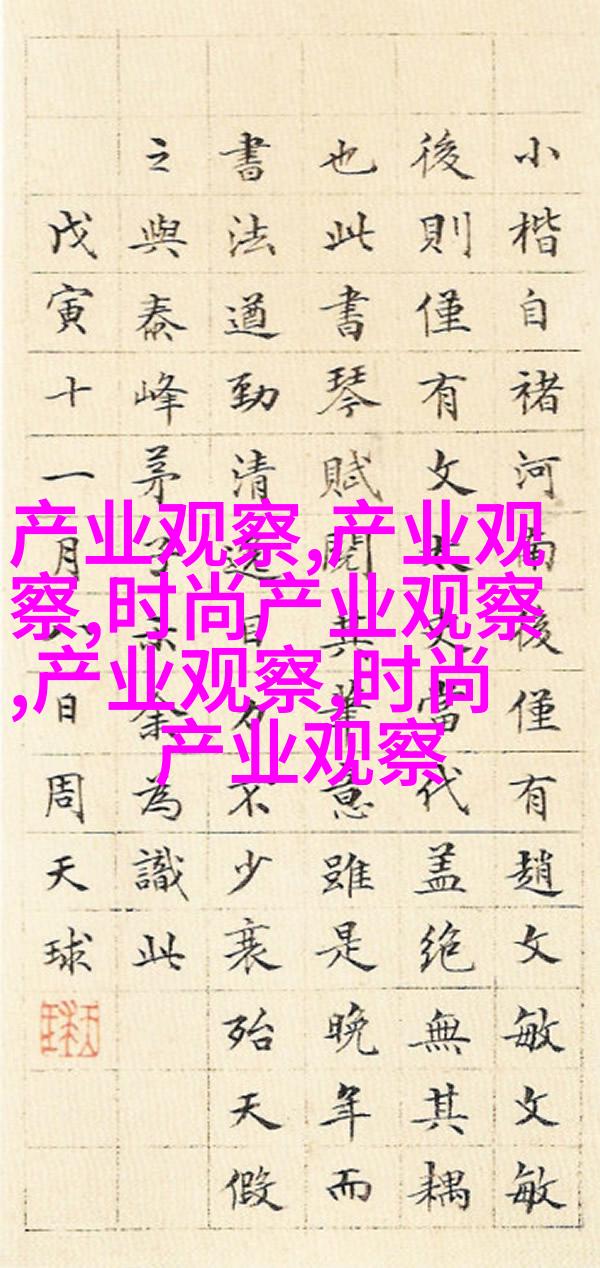 小楷自褚河南後僅有趙文敏文敏
後則僅有文太史當代盖絶無其耦
也此書琴賦閱其筆意雖是晚年而
書法遒勁清逸目力不少衰殆天假
之與泰峰茅子示余為識此
戊寅十一月八日周天球
产业观察,产业观
察,时尚产业观察
,产业观察,时尚
产业观察